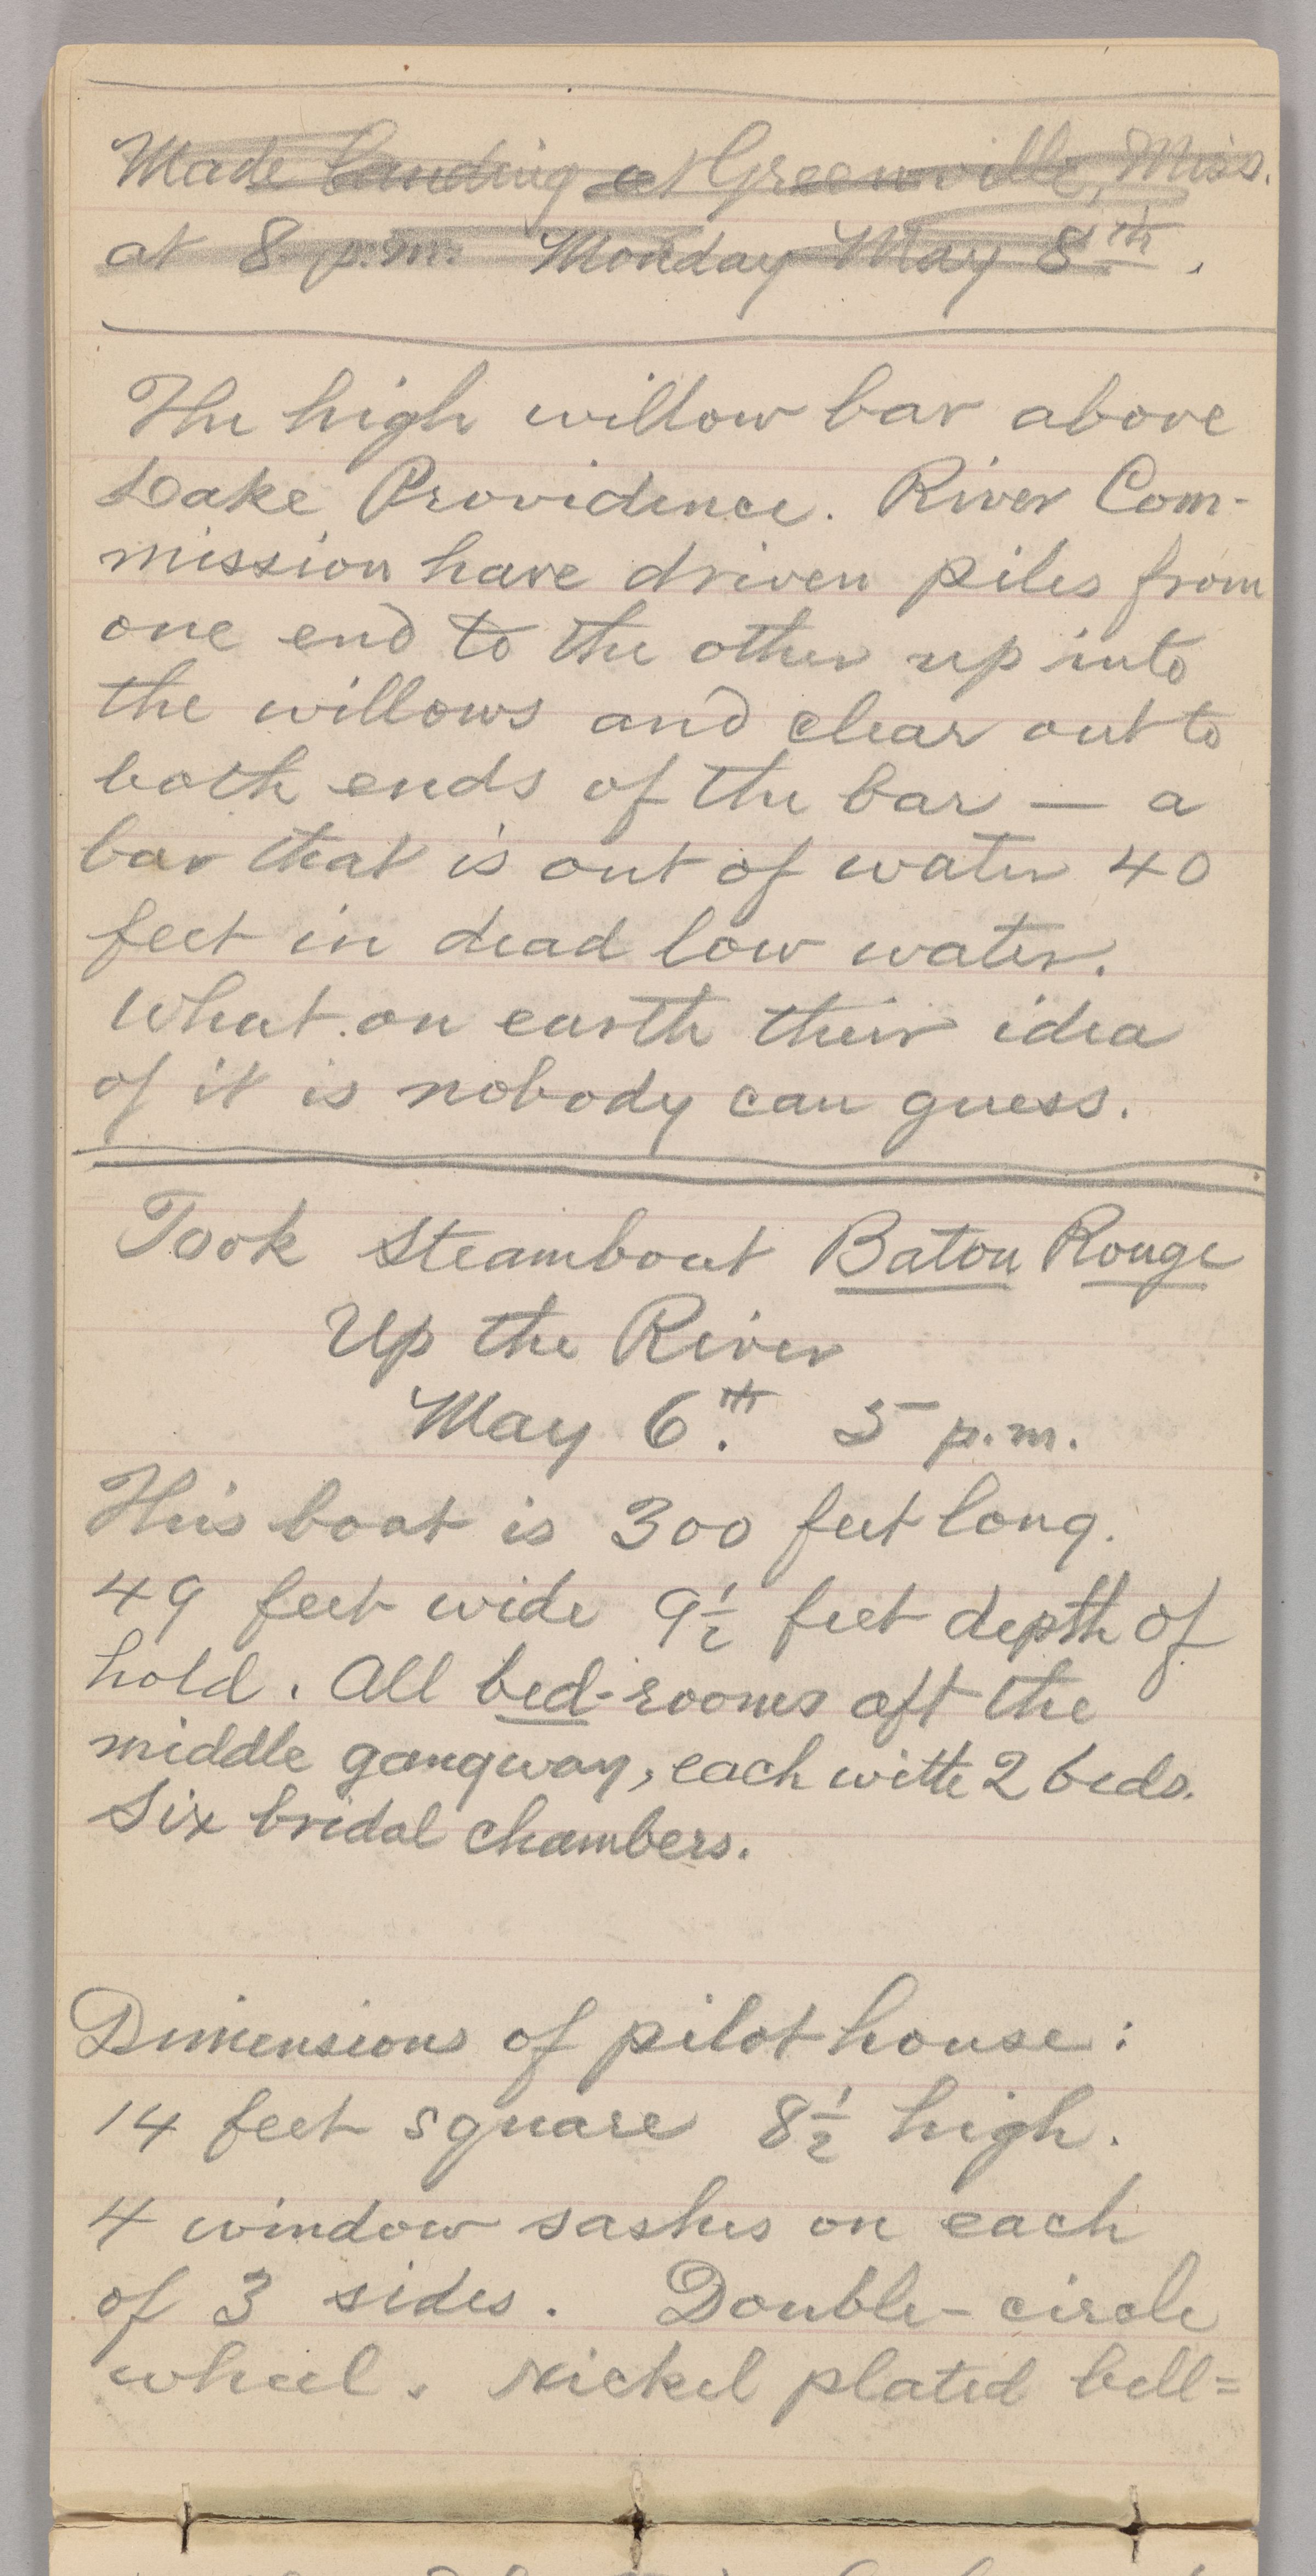 Made landing at Greenville, Miss.
at 8 p.m. Monday May 8th.
The high willow bar above
Lake Providence. River Com-
mission have driven piles from
one end to the other up into
the willows and clear out to
both ends of the bar — a
bar that is out of water 40
feet in dead low water.
What on earth their idea
of it is nobody can guess.
Took steamboat Baton Rouge
Up the River
May 6th. 5 p.m.
This boat is 300 feet long.
49 feet wide 9½ feet depth of
hold. All bed-rooms aft the
middle gangway, each with 2 beds.
Six bridal chambers.
Dimensions of pilot house:
14 feet square 8½ high.
4 window sashes on each
of 3 sides. Double-circle
wheel. Nickel plated bell=